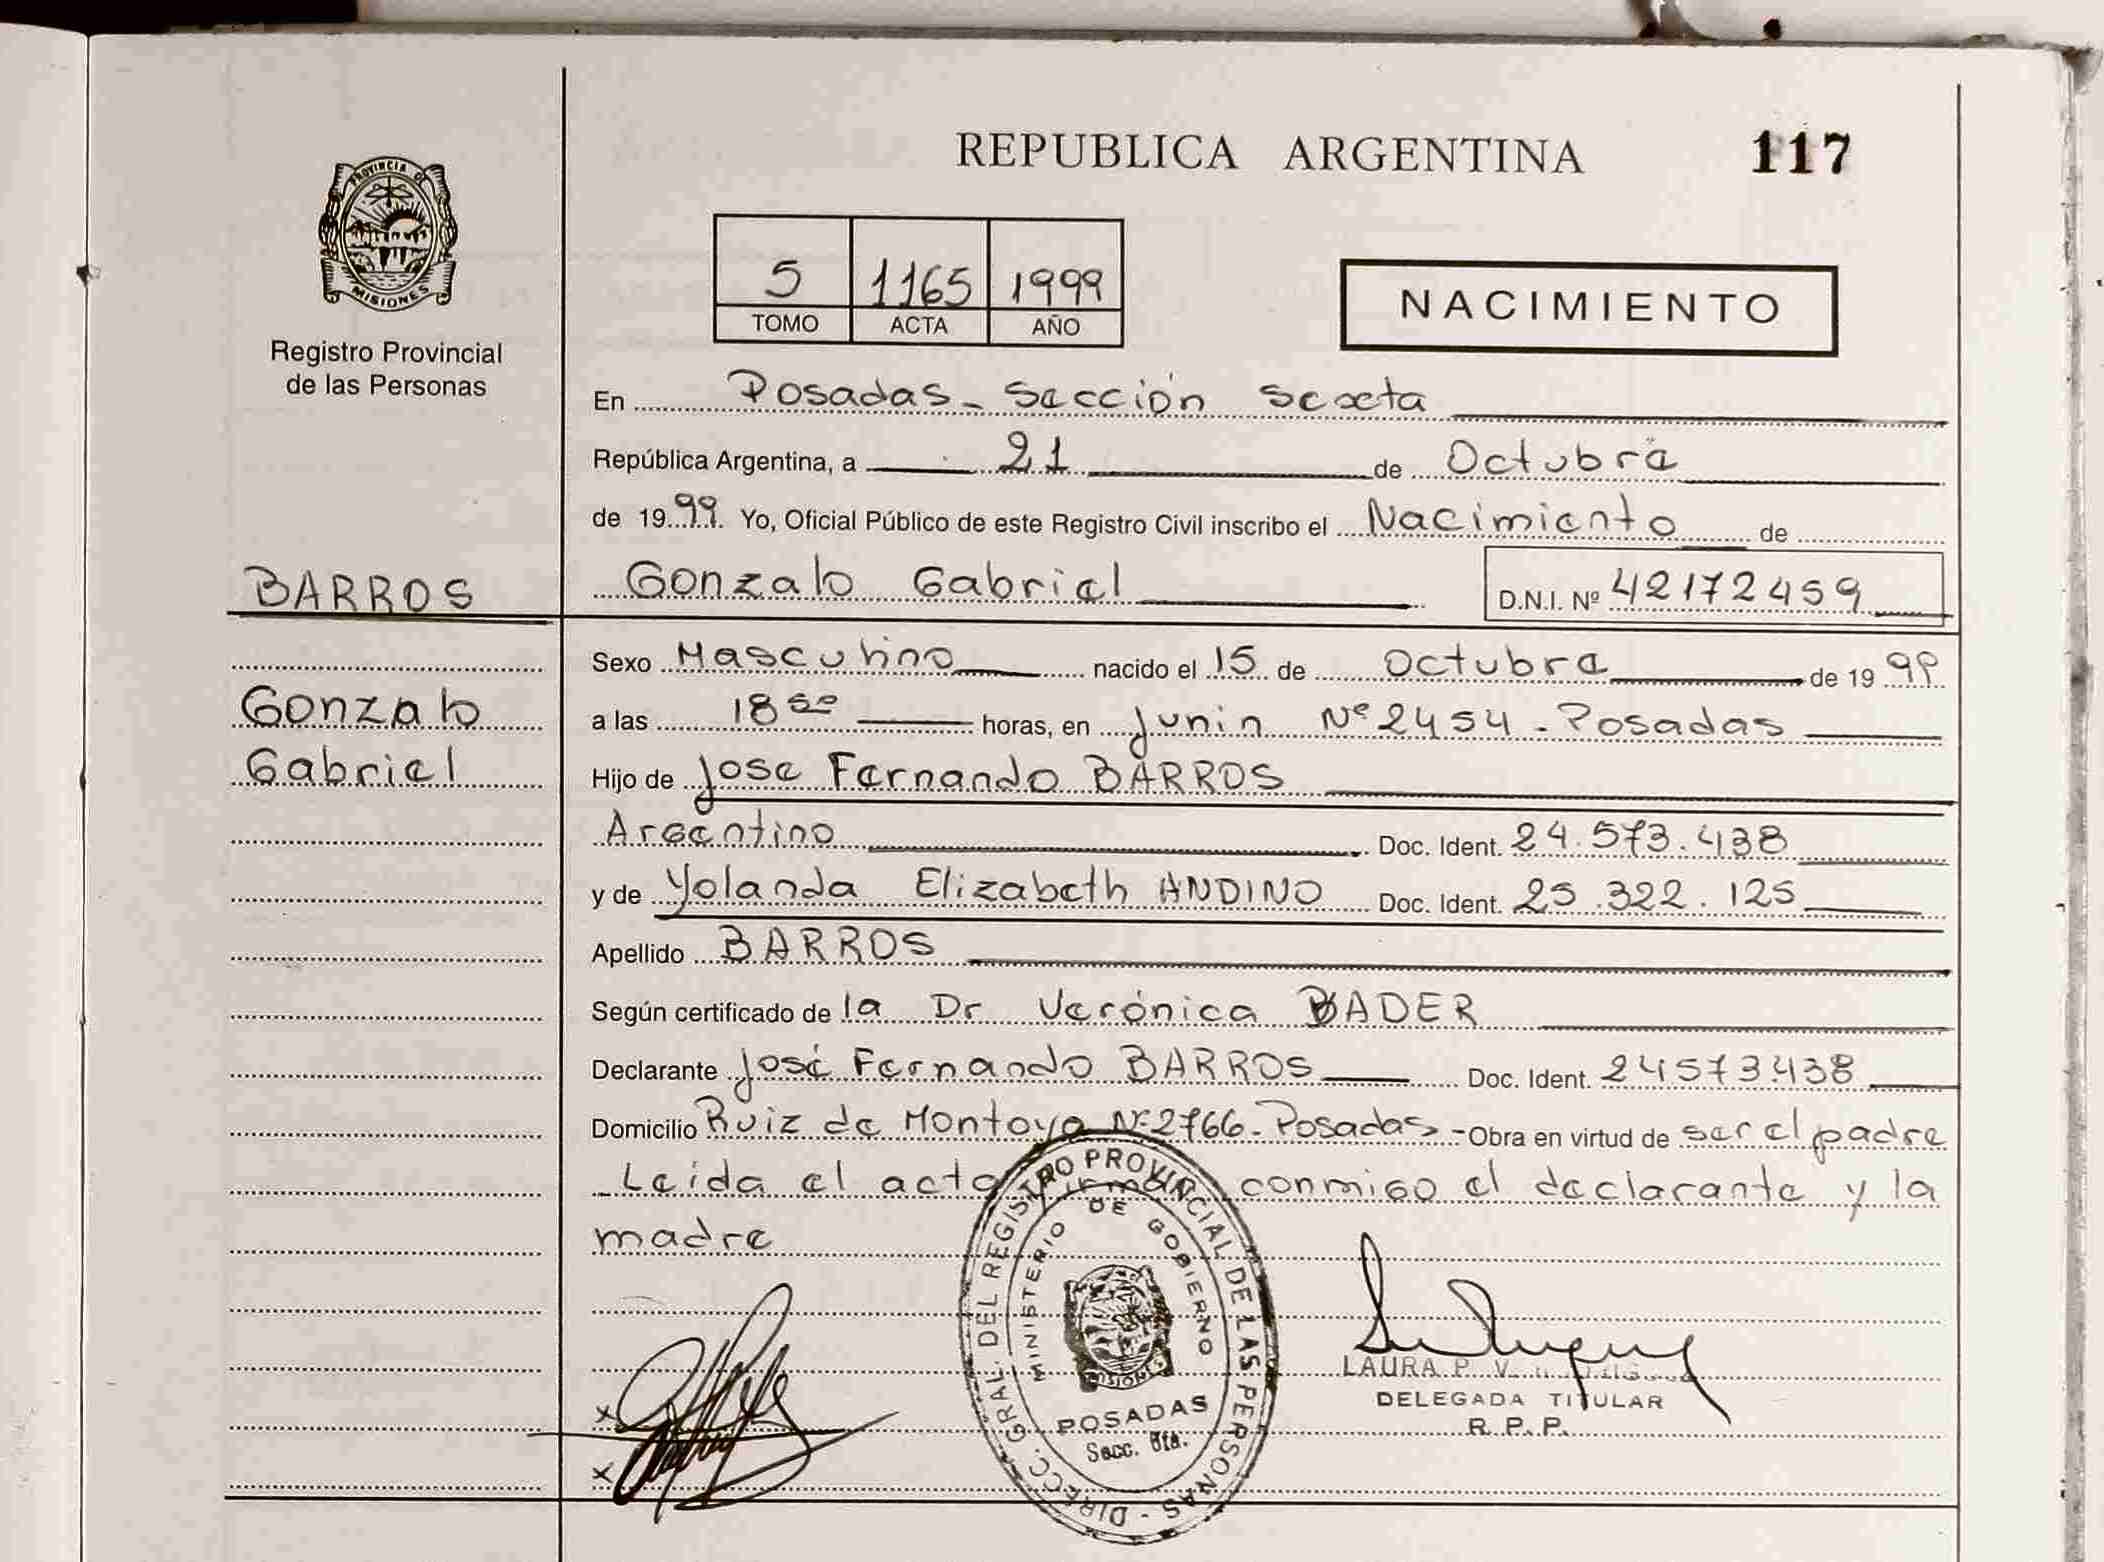 REPUBLICA ARGENTINA 117
PROVINCIA DE
MISIONES
Registro Provincial
de las Personas
5 1165 1999
TOMO ACTA AÑO
NACIMIENTO
En Posadas - Sección Sexta
República Argentina, a 21 de Octubre
de 1999. Yo, Oficial Público de este Registro Civil inscribo el Nacimiento de
BARROS
Gonzalo Gabriel D.N.I. Nº 42172459
Gonzalo
Gabriel
Sexo Masculino nacido el 15 de Octubre de 1999
a las 18 horas, en Junin Nº 2454 - Posadas
Hijo de Jose Fernando BARROS
Argentino Doc. Ident. 24.573.438
y de Yolanda Elizabeth ANDINO Doc. Ident. 25.322.125
Apellido BARROS
Según certificado de la Dr Verónica BADER
Declarante José Fernando BARROS Doc. Ident. 24573.438
Domicilio Ruiz de Montoya Nº 2766 - Posadas - Obra en virtud de ser el padre
Leida el acta conmigo el declarante y la
madre
DIRECC. GRAL. DEL REGISTRO PROVINCIAL DE LAS PERSONAS -
MINISTERIO DE GOBIERNO
MISIONES
POSADAS
Secc. 6ta.
LAURA P. V.
DELEGADA TITULAR
R. P. P.
x
x